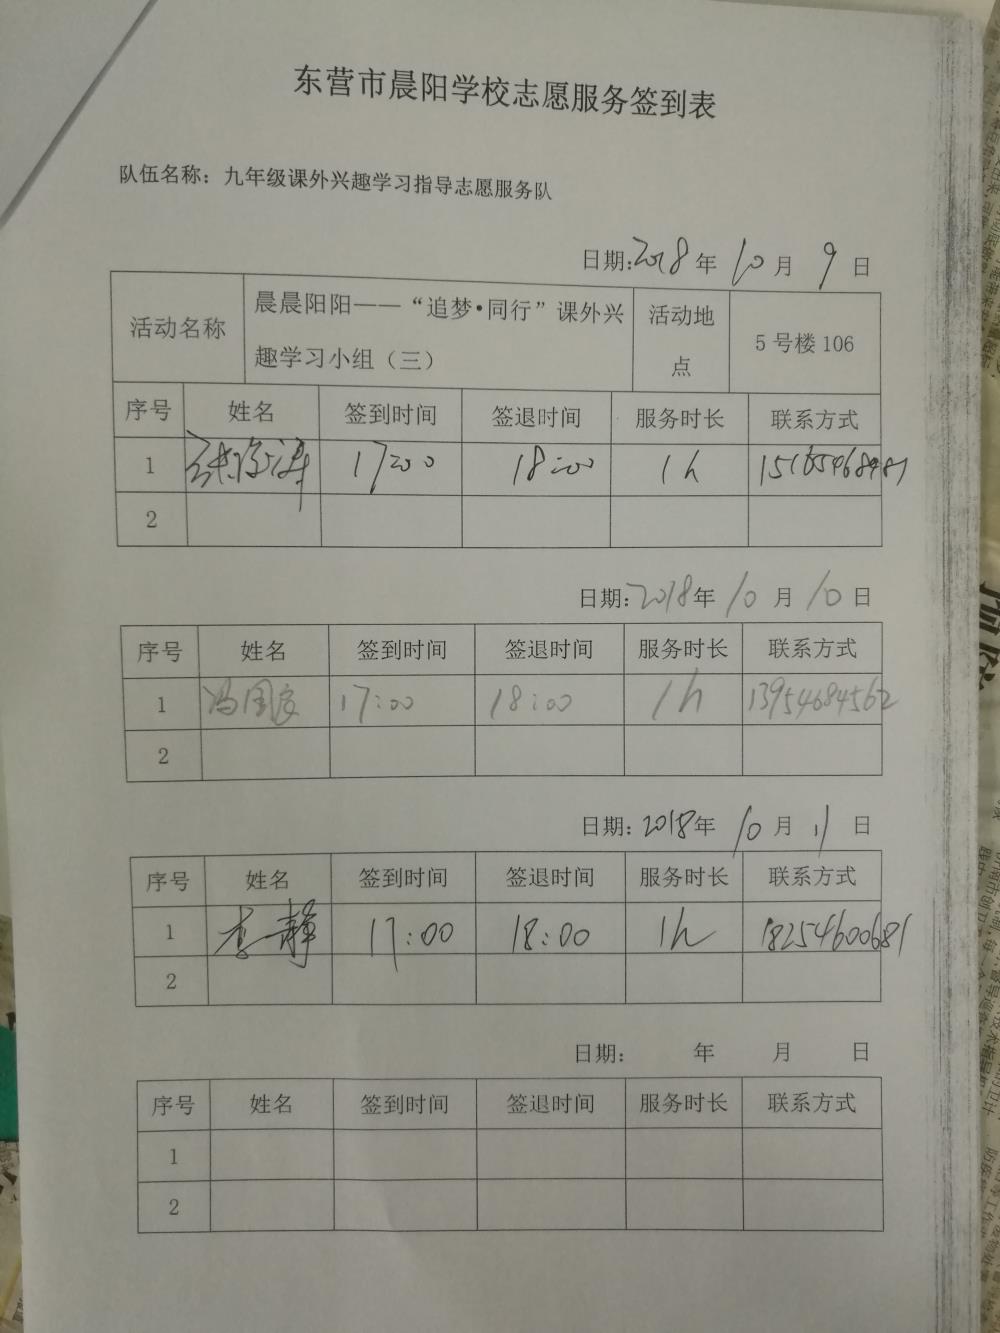 东营市晨阳学校志愿服务签到表
队伍名称：九年级课外兴趣学习指导志愿服务队
日期:2018年10月9日
活动名称 晨晨阳阳——“追梦·同行”课外兴趣学习小组（三） 活动地点 5号楼106
序号 姓名 签到时间 签退时间 服务时长 联系方式
1 17:00 18:00 1h
2
日期:2018年10月10日
序号 姓名 签到时间 签退时间 服务时长 联系方式
1 17:00 18:00 1h 13954684562
2
日期:2018年10月11日
序号 姓名 签到时间 签退时间 服务时长 联系方式
1 李静 17:00 18:00 1h 18254600681
2
日期: 年 月 日
序号 姓名 签到时间 签退时间 服务时长 联系方式
1
2